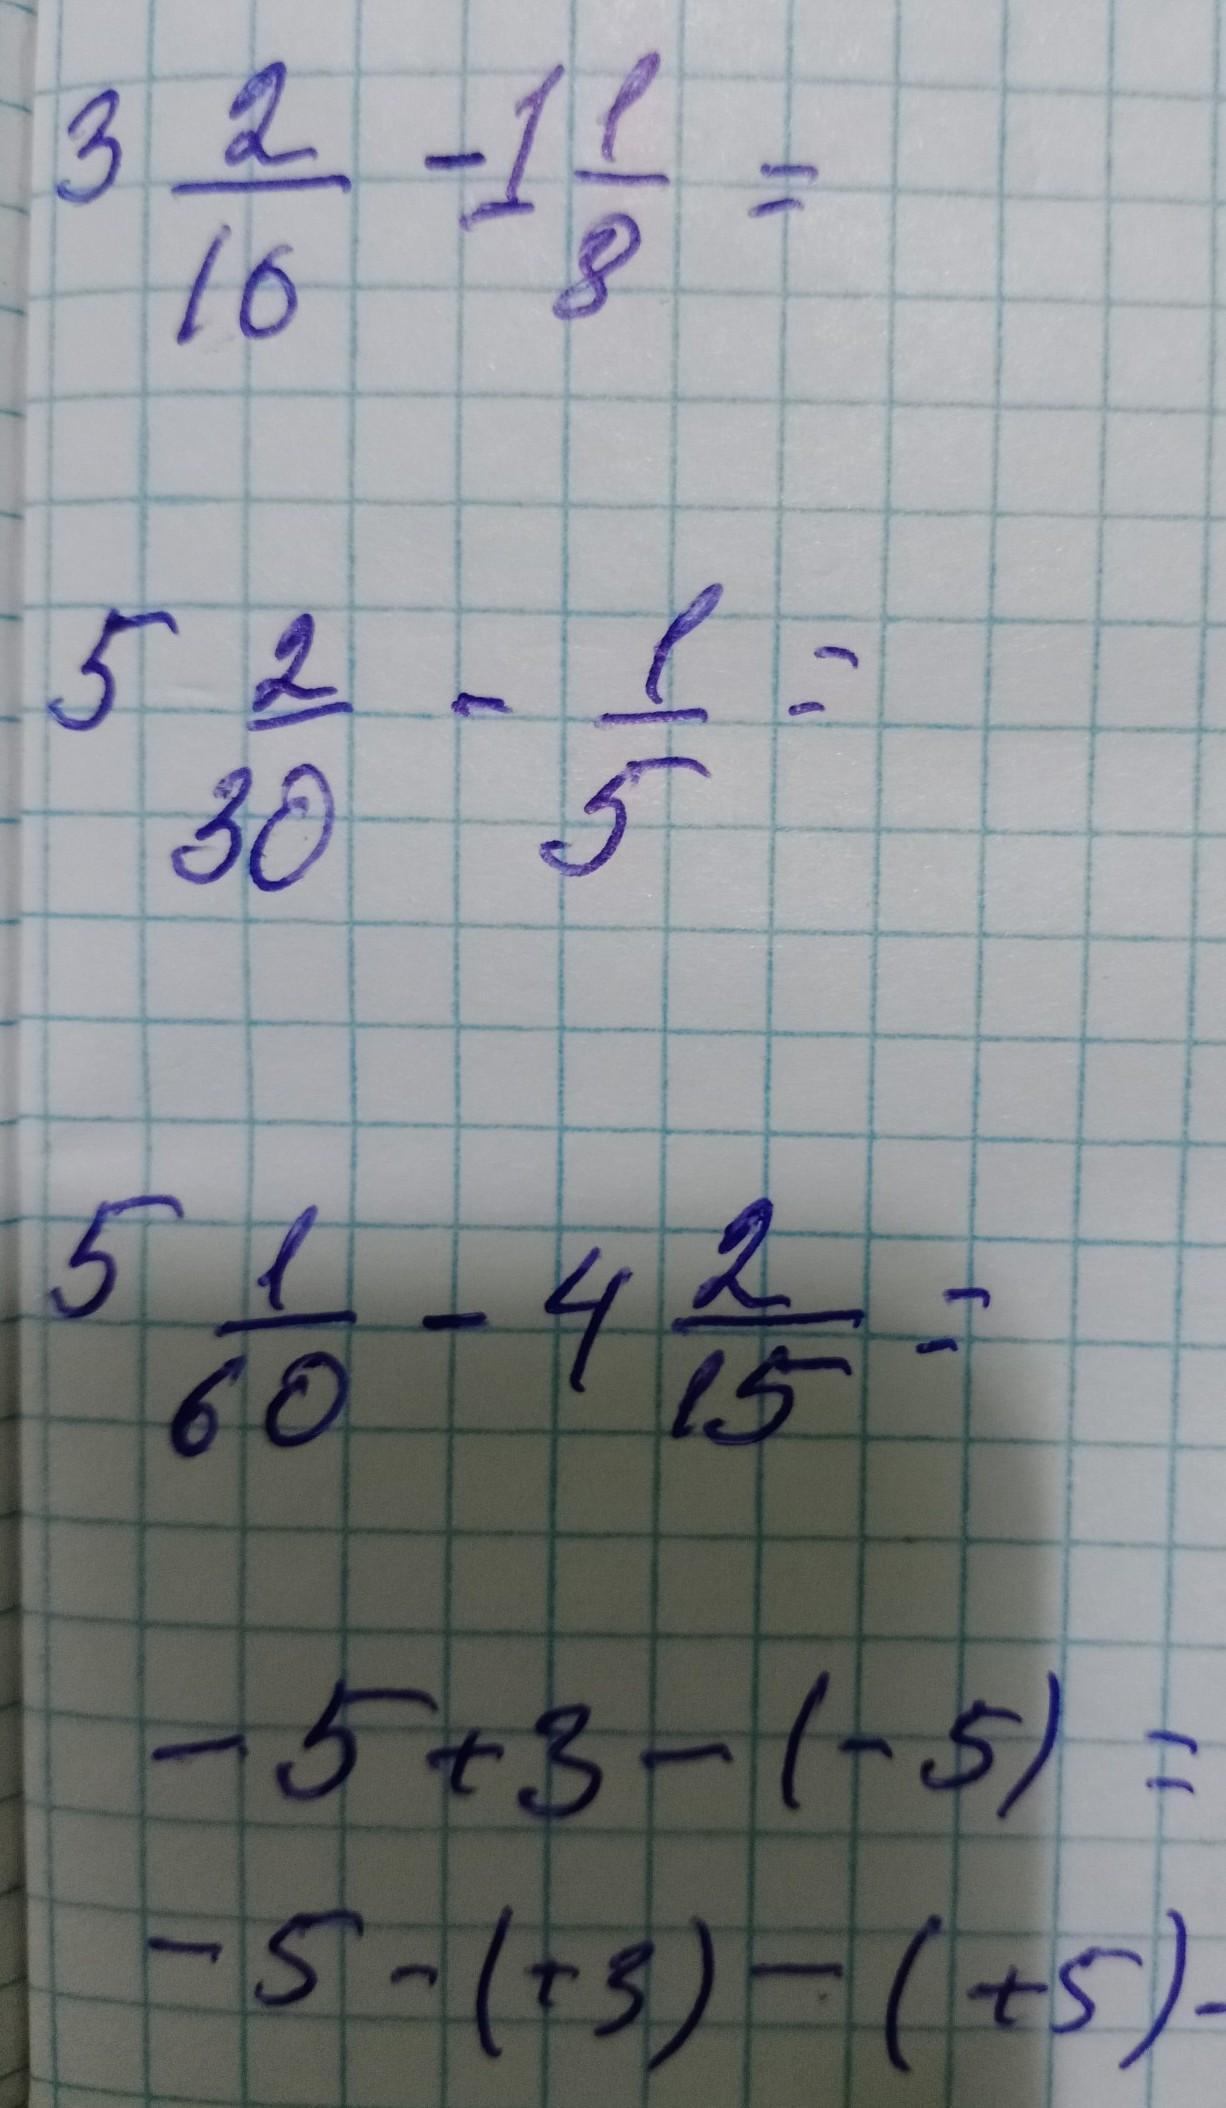 3 2/10 - 1 1/8 =
5 2/30 - 1/5 =
5 1/60 - 4 2/15 =
-5+3-(-5) =
-5-(+3)-(+5)-